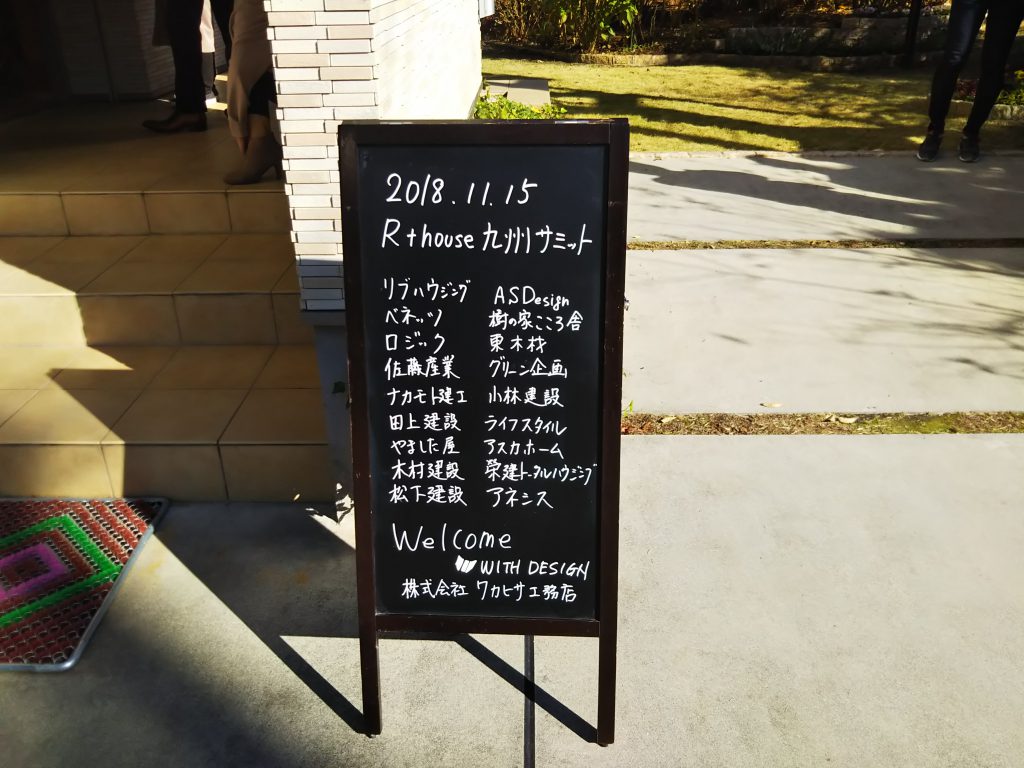 2018.11.15
R+house 九州サミット
リブハウジング
ベネッツ
ロジック
佐藤産業
ナカモト建工
田上建設
やました屋
木村建設
松下建設
ASDesign
樹の家こころ舎
東木材
グリーン企画
小林建設
ライフスタイル
アスカホーム
栄建トータルハウジング
アネシス
Welcome
WITH DESIGN
株式会社 ワカヒサ工務店